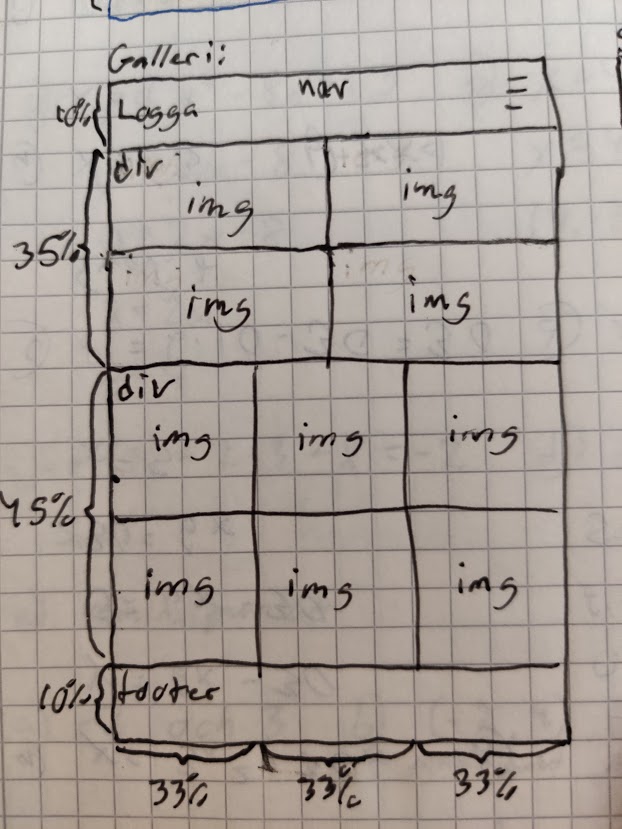 Galleri:
nav
10%
Logga
div
img
img
35%
img
img
div
img
img
img
45%
img
img
img
10%
footer
33%
33%
33%